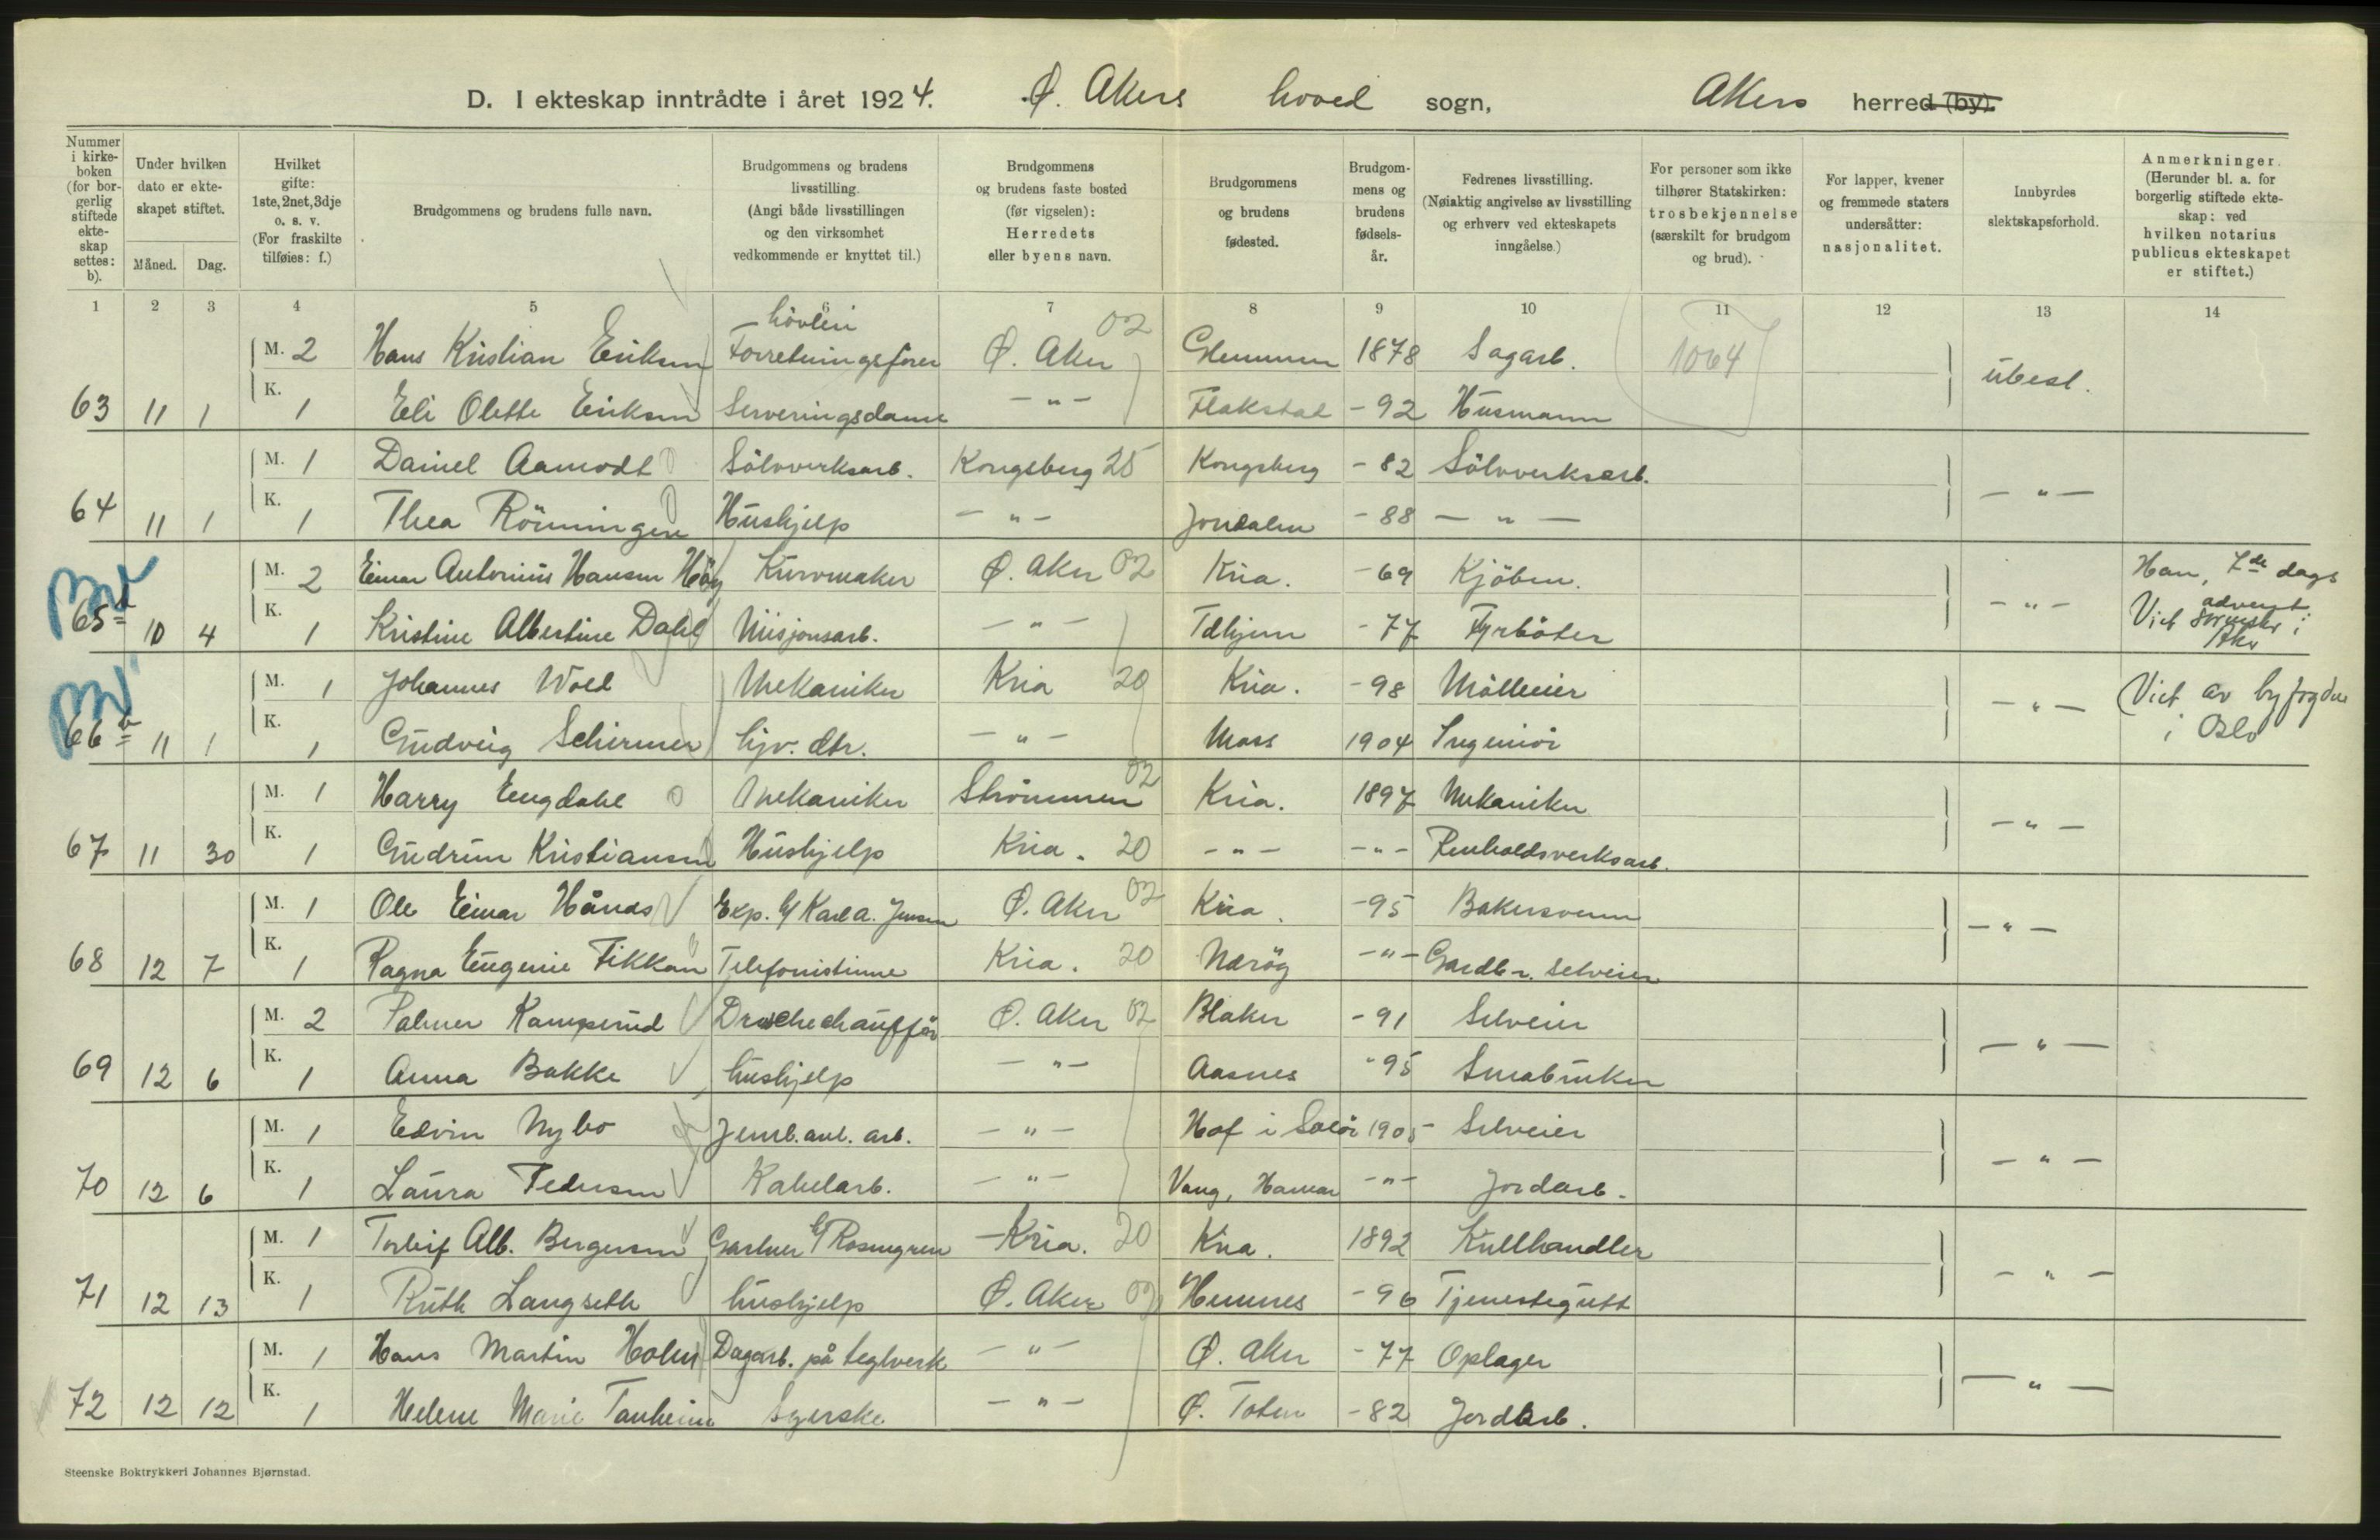 D. I ekteskap inntrådte i året 1924. Ø. Akers hoved sogn, Akers herred (by).
Nummer i kirkeboken (for borgerlig stiftede ekteskap settes: b).
Under hvilken dato er ekteskapet stiftet.
Måned. Dag.
Hvilket gifte: 1ste, 2net, 3dje o. s. v. (For fraskilte tilføies: f.)
Brudgommens og brudens fulle navn.
Brudgommens og brudens livsstilling. (Angi både livsstillingen og den virksomhet vedkommende er knyttet til.)
Brudgommens og brudens faste bosted (før vigselen): Herredets eller byens navn.
Brudgommens og brudens fødested.
Brudgommens og brudens fødselsår.
Fedrenes livsstilling. (Nøiaktig angivelse av livsstilling og erhverv ved ekteskapets inngåelse.)
For personer som ikke tilhører Statskirken: trosbekjennelse (særskilt for brudgom og brud).
For lapper, kvener og fremmede staters undersåtter: nasjonalitet.
Innbyrdes slektskapsforhold.
Anmerkninger. (Herunder bl. a. for borgerlig stiftede ekteskap: ved hvilken notarius publicus ekteskapet er stiftet.)
1 2 3 4 5 6 7 8 9 10 11 12 13 14
hövleri 02
M. 2 Hans Kristian Eriksen Forretningsfører Ø. Aker Glemmen 1878 Sagarb. 1064 ubesl.
63 11 1 K. 1 Eli Olette Eriksen Serveringsdame — " — Flakstad - 92 Husmann
M. 1 Daniel Aamodt Sölvverksarb. Kongsberg 25 Kongsberg - 82 Sölvverksarb. — " —
64 11 1 K. 1 Thea Rönningen Hushjelp — " — Jondalen - 88 — " —
M. 2 Einar Antonius Hansen Höy Kurvmaker Ø. Aker 02 Kria. - 69 Kjöbm. — " — Han, 7de dags advent.
65 b 10 4 K. 1 Kristine Albertine Dahl Misjonsarb. — " — Tdhjem - 77 Fyrböter Viet Sorenskr i Aker
M. 1 Johannes Wold Mekaniker Kria 20 Kria. - 98 Mölleeier — " — Viet av byfogden i Oslo
66 b 11 1 K. 1 Gudveig Schirmer hjv. dtr. — " — Moss 1904 Ingeniör
M. 1 Harry Engdahl Mekaniker Strömmen 02 Kria. 1897 Mekaniker — " —
67 11 30 K. 1 Gudrun Kristiansen Hushjelp Kria. 20 — " — — " — Renholdsverksarb.
M. 1 Ole Einar Hånds Exp. Karl A. Jensen Ø. Aker 02 Kria. - 95 Bakersvenn — " —
68 12 7 K. 1 Ragna Eugenie Fikkan Telefonistinne Kria. 20 Nærög — " — Gardbr. selveier
M. 2 Palmer Kamperud Droschechauffør Ø. Aker 02 Blaker - 91 Selveier — " —
69 12 6 K. 1 Anna Bakke hushjelp — " — Aasnes - 95 Småbruker
M. 1 Edvin Nybo Jernb.anl. arb. — " — Hof i Solör 1905 Selveier — " —
70 12 6 K. 1 Laura Pedersen Kabelarb. — " — Vang, Hamar — " — Jordarb.
M. 1 Torleif Alb. Bergersen Gartner Rosengren Kria. 20 Kria. 1892 Kullhandler — " —
71 12 13 K. 1 Ruth Langseth hushjelp Ø. Aker 02 Hemnes - 96 Tjenestegutt
M. 1 Hans Martin Holm Dagarb. på teglverk — " — Ø. Aker - 77 Oplager — " —
72 12 12 K. 1 Helene Marie Tanheim Syerske — " — Ø. Toten - 82 Jordarb.
Steenske Boktrykkeri Johannes Bjørnstad.